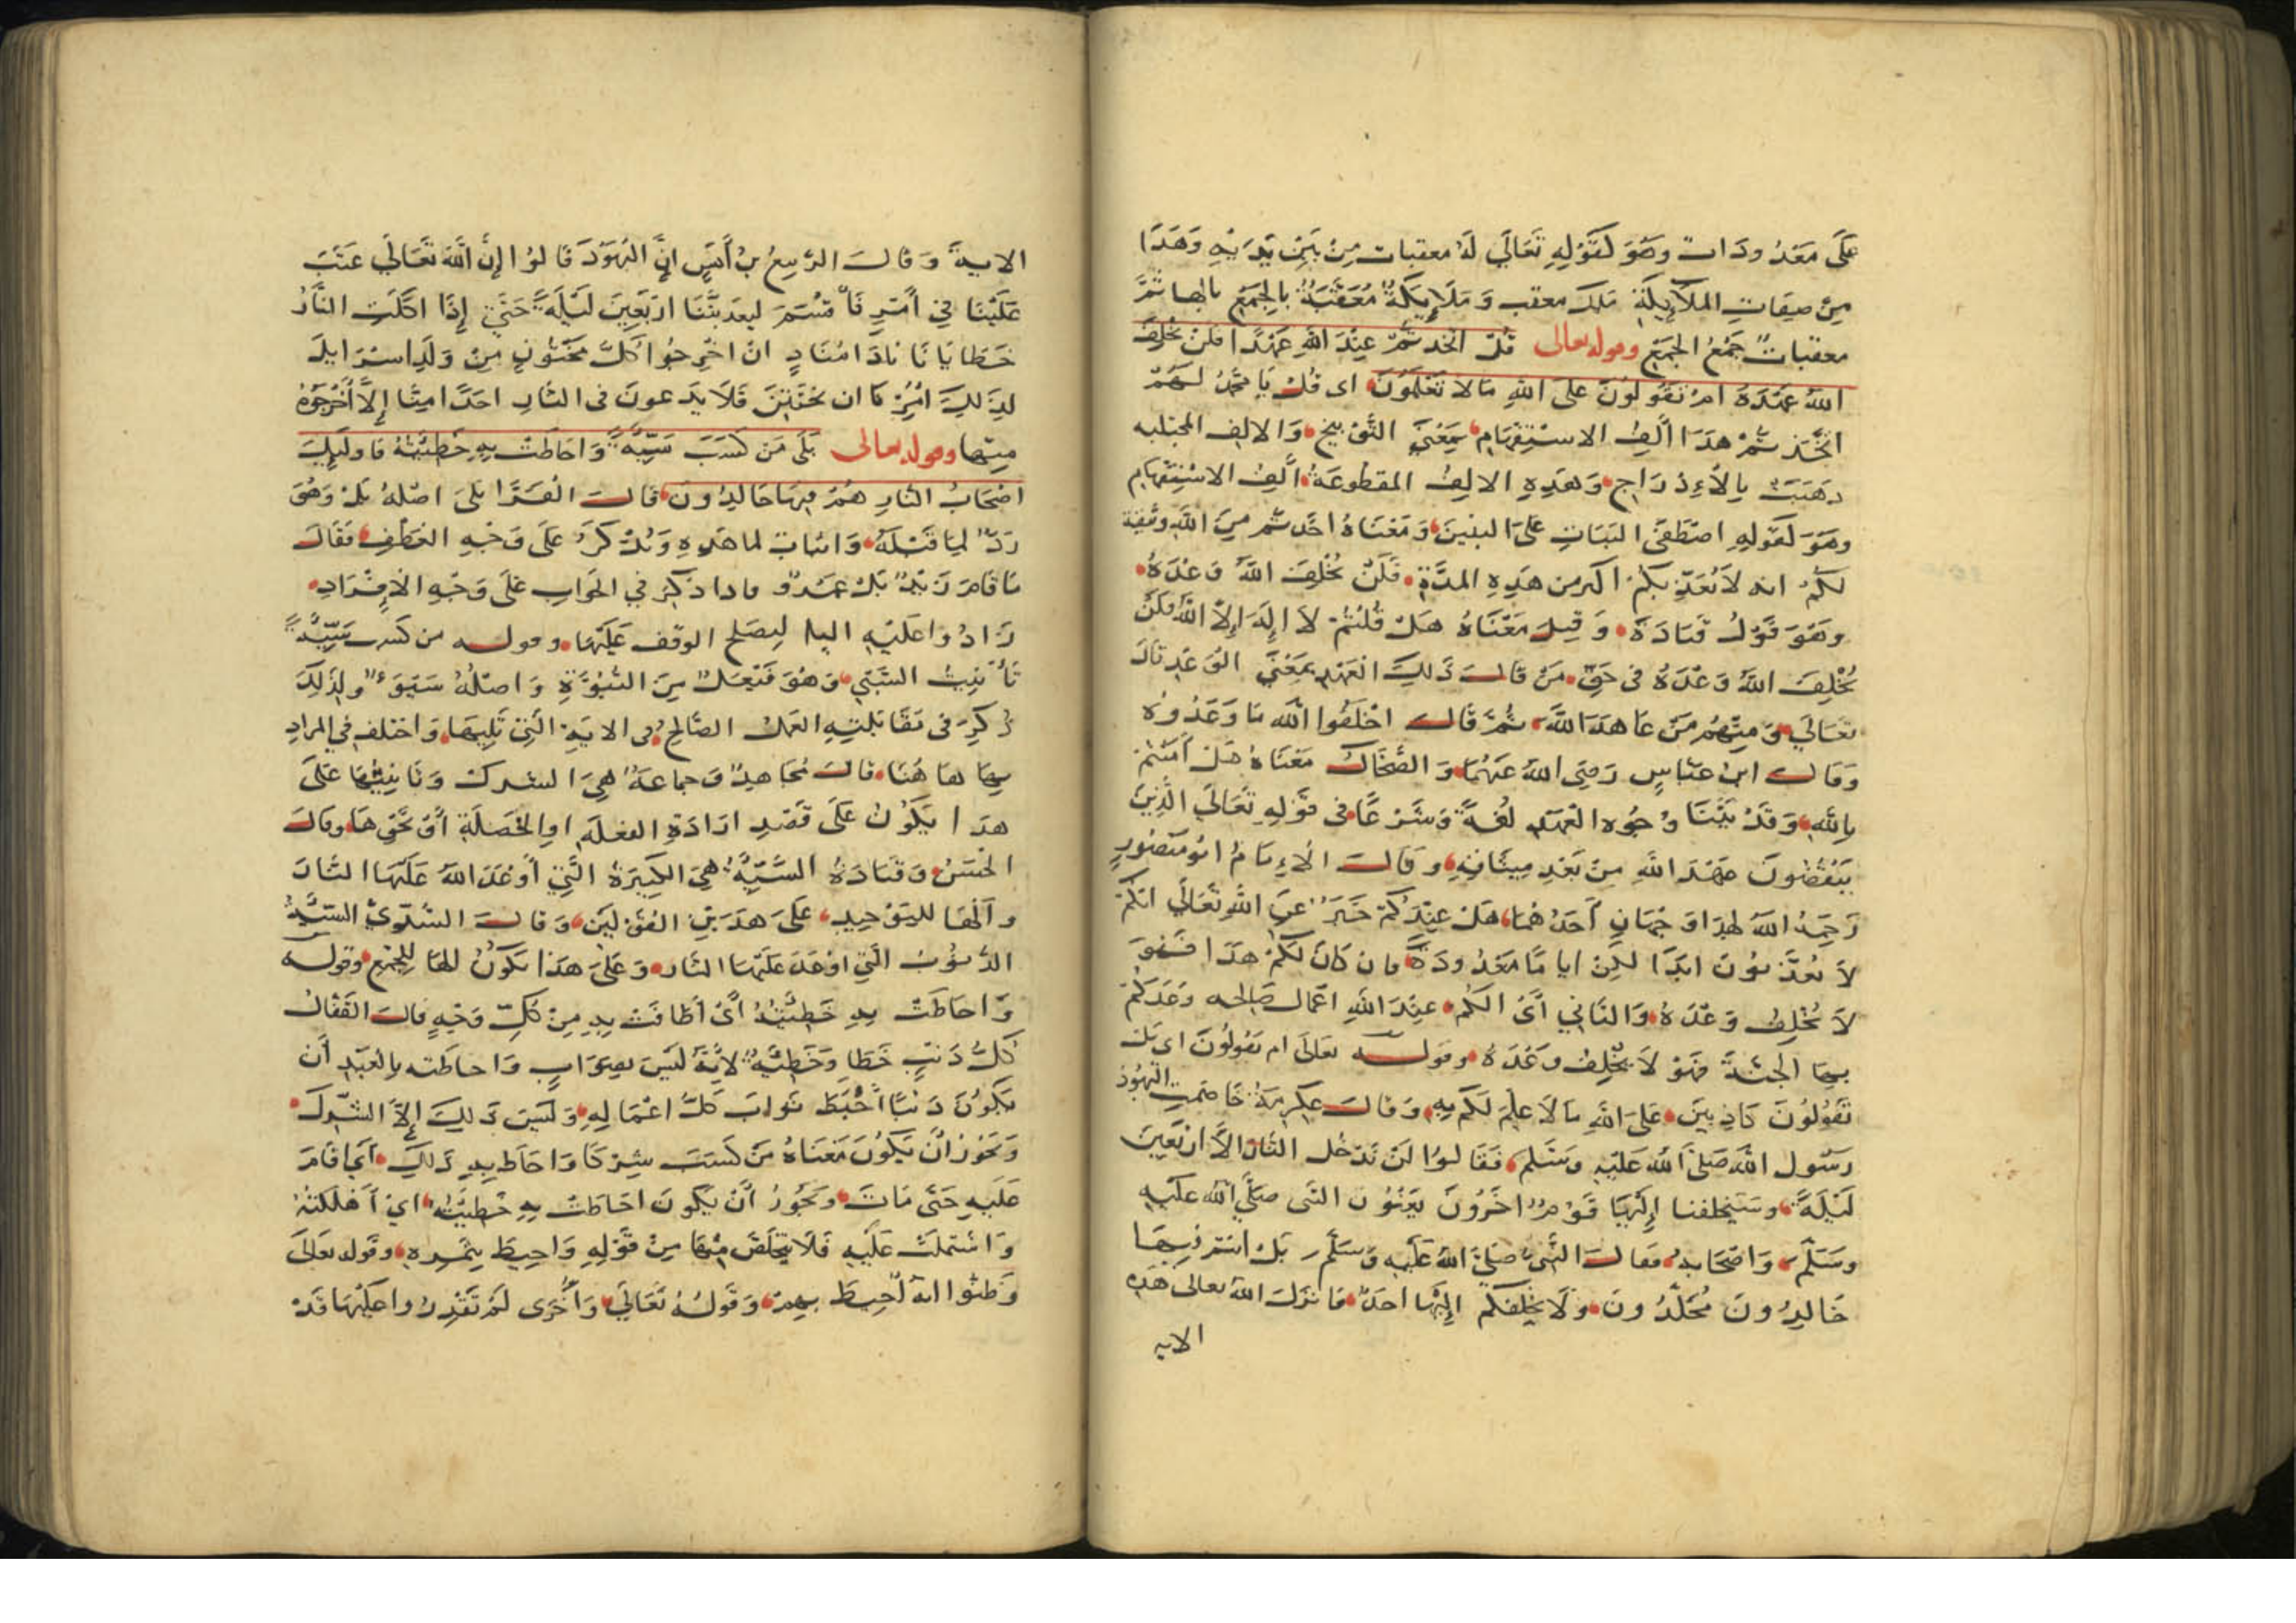 على معدودات وهو كقوله تعالى له معقبات من بين يديه وهذا
من صفات الملائكة ملك معقب وملائكة معقبة بالجمع بالها ثم
معقبات جمع الجمع وقوله تعالى قل اتخذتم عند الله عهدا فلن يخلف
الله عهده ام تقولون على الله ما لا تعلمون اى قل يا محمد لهم
اتخذتم هذا الف الاستفهام بمعنى التوبيخ والالف المجتلبه
ذهبت بالادراج وهذه الالف المقطوعة الف الاستفهام
وهو كقوله اصطفى البنات على البنين ومعناه اخذتم من الله وثيقة
لكم انه لا يعذبكم اكثر من هذه المدة فلن يخلف الله وعده
وهو قول قتادة وقيل معناه هل قلتم لا اله الا الله فلن
يخلف الله وعده فى حق من قال ذلك العهد بمعنى الوعد قال
تعالى ومنهم من عاهد الله ثم قال اخلفوا الله ما وعدوه
وقال ابن عباس رضى الله عنهما والضحاك معناه هل امنتم
بالله وقد بينا وجوه العهد لغة وشرعا فى قوله تعالى الذين
ينقضون عهد الله من بعد ميثاقه وقال الامام ابو منصور
رحمه الله لهذا وجهان احدهما هل عندكم خبر عن الله تعالى انكم
لا تعذبون ابدا لكن اياما معدودة فان كان لكم هذا فهو
لا يخلف وعده والثانى اى الكم عند الله اعمال صالحه وعدكم
بها الجنة فهو لا يخلف وعده وقوله تعالى ام تقولون اى بل
تقولون كاذبين على الله ما لا علم لكم به وقال عكرمة خاصمت اليهود
رسول الله صلى الله عليه وسلم فقالوا لن ندخل النار الا اربعين
ليلة وسيخلفنا اليها قوم اخرون يعنون النبى صلى الله عليه
وسلم واصحابه فقال النبى صلى الله عليه وسلم بل انتم فيها
خالدون مخلدون ولا يخلفكم اليها احد فانزل الله تعالى هذه
الايه
الاية وقال الربيع بن أنس ان اليهود قالوا إن الله تعالى عتب
علينا في أمر فأقسم ليعذبننا اربعين ليلة حتى إذا اكلت النار
خطايانا نادا مناد ان اخرجوا كل مختون من ولد اسرايل
لذلك امرنا ان نختتن فلا يدعون فى النار احدا منا إلا أخرجوه
منها وقوله تعالى بلى من كسب سيئة واحاطت به خطيئته فاولئك
اصحاب النار هم فيها خالدون قالت الفرا بلى اصله بل وهو
رد لما قبله واثبات لما بعده وبل كر على وجه العطف فقال
ما قام زيد بل عمرو فاذا ذكر في الجواب على وجه الافراد
زادوا عليه اليا ليصلح الوقف عليها وقوله من كسب سيئة
تأنيث السيئ وهو فيعل من السوءة واصله سيوء ولذلك
ذكر فى مقابلته العمل الصالح فى الاية التى تليها واختلف في المراد
بها هاهنا قال مجاهد وجماعة هى الشرك وتانيثها على
هذا يكون على قصد ارادة الفعله او الخصلة أو نحوها وقال
الحسن وقتادة السيئة هى الكبيرة التي أوعد الله عليها النار
والها للتوحيد على هذين القولين وقال السدى السيئة
الذنوب التى اوعد عليها النار وعلى هذا يكون الها للجمع وقوله
واحاطت به خطيئته أى أطافت به من كل وجه قال القفال
كل ذنب خطا وخطيئة لانه ليس بصواب واحاطته بالعبد أن
يكون ذنبا أحبط ثواب كل اعماله وليس ذلك إلا الشرك
ويجوز أن يكون معناه من كسب شركا واحاط به ذلك أى اقام
عليه حتى مات ويجوز أن يكون احاطت به خطيئته اى أهلكته
واشتملت عليه فلا يتخلص منها من قوله واحيط بثمره وقوله تعالى
وظنوا انه أحيط بهم وقوله تعالى وأخرى لم تقدروا عليها قد